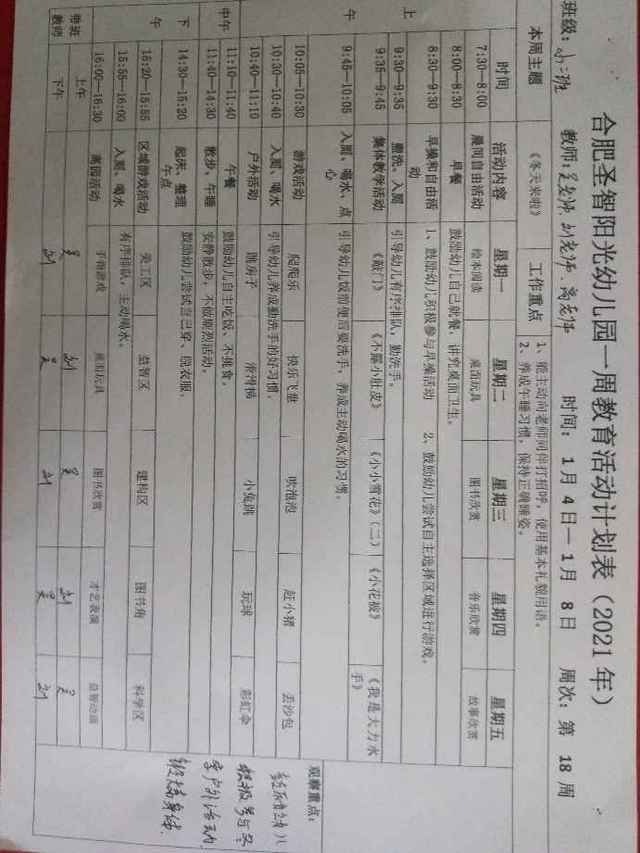 合肥圣智阳光幼儿园一周教育活动计划表（2021年）
班级：小二班 教师： 时间：1月4日—1月8日 周次：第 18 周
本周主题 《冬天来啦》 工作重点 1、能主动向老师同伴打招呼，使用基本礼貌用语。
2、养成午睡习惯，保持正确睡姿。
时间 活动内容 星期一 星期二 星期三 星期四 星期五
上午
7:30—8:00 晨间自由活动 绘本阅读 桌面玩具 图书欣赏 音乐欣赏 故事欣赏
8:00—8:30 早餐 鼓励幼儿自己就餐、讲究桌面卫生。
8:30—9:30 早操和自由活动 1、鼓励幼儿积极参与早操活动 2、鼓励幼儿尝试自主选择区域进行游戏。
9:30—9:35 盥洗、入厕 引导幼儿有序排队，勤洗手。
9:35—9:45 集体教学活动 《敲门》 《不露小肚皮》 《小小雪花》（二） 《小花被》 《我是大力水手》
9:45—10:05 入厕、喝水、点心 引导幼儿饭前便后要洗手，养成主动喝水的习惯。
10:05—10:30 游戏活动 爬爬乐 快乐飞盘 吹泡泡 赶小猪 丢沙包
10:30—10:40 入厕、喝水 引导幼儿养成勤洗手的好习惯。
10:40—11:10 户外活动 跳房子 滑滑梯 小兔跳 玩球 彩虹伞
中午
11:10—11:40 午餐 鼓励幼儿自主吃饭、不挑食。
11:40—14:30 散步、午睡 安静散步，不做剧烈活动。
下午
14:30—15:20 起床、整理午点 鼓励幼儿尝试自己穿、脱衣服。
15:20—15:55 区域游戏活动 美工区 益智区 建构区 图书角 科学区
15:55—16:00 入厕、喝水 有序排队，主动喝水。
16:00—16:30 离园活动 手指游戏 桌面玩具 图书欣赏 才艺表演 益智动画
带班教师
上午 吴 刘 吴 刘 吴
下午 刘 吴 刘 吴 刘
观察重点：